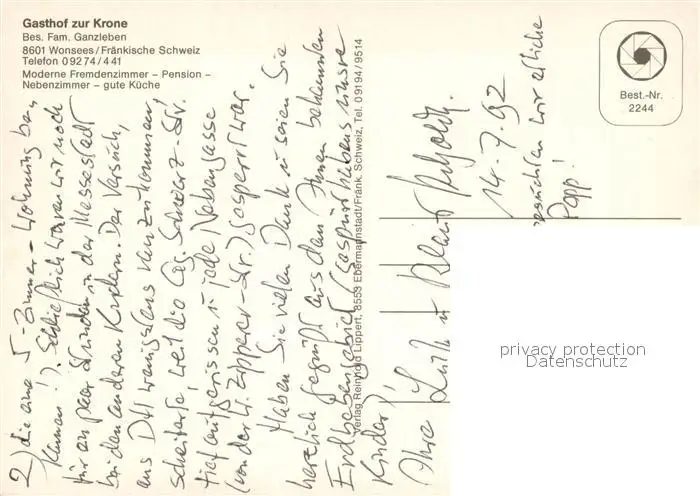 Gasthof zur Krone
Bes. Fam. Ganzleben
8601 Wonsees/Fränkische Schweiz
Telefon 0 92 74 / 4 41
Moderne Fremdenzimmer – Pension –
Nebenzimmer – gute Küche
Best.-Nr.
2244
Verlag Reinhold Lippert, 8553 Ebermannstadt/Fränk. Schweiz, Tel. 0 91 94 / 95 14
2) die eine 5-Zimmer-Wohnung be-
kamen!). Schließlich waren wir noch
für ein paar Stunden in der Messestadt
bei den anderen Kindern. Der Versuch,
aus DH wenigstens hinzukommen,
scheiterte, weil die Gg. Schwarz-Str.
tief aufgerissen u. jede Nebengasse
(von der W. Zipperer-Str.) gesperrt war.
Haben Sie vielen Dank u. seien Sie
herzlich gegrüßt aus dem Ihnen bekannten
Erdbebengebiet (gespürt haben's unsre
Kinder)!
Ihre u.
14.7.92
wir etliche
Pepp!
privacy protection
Datenschutz